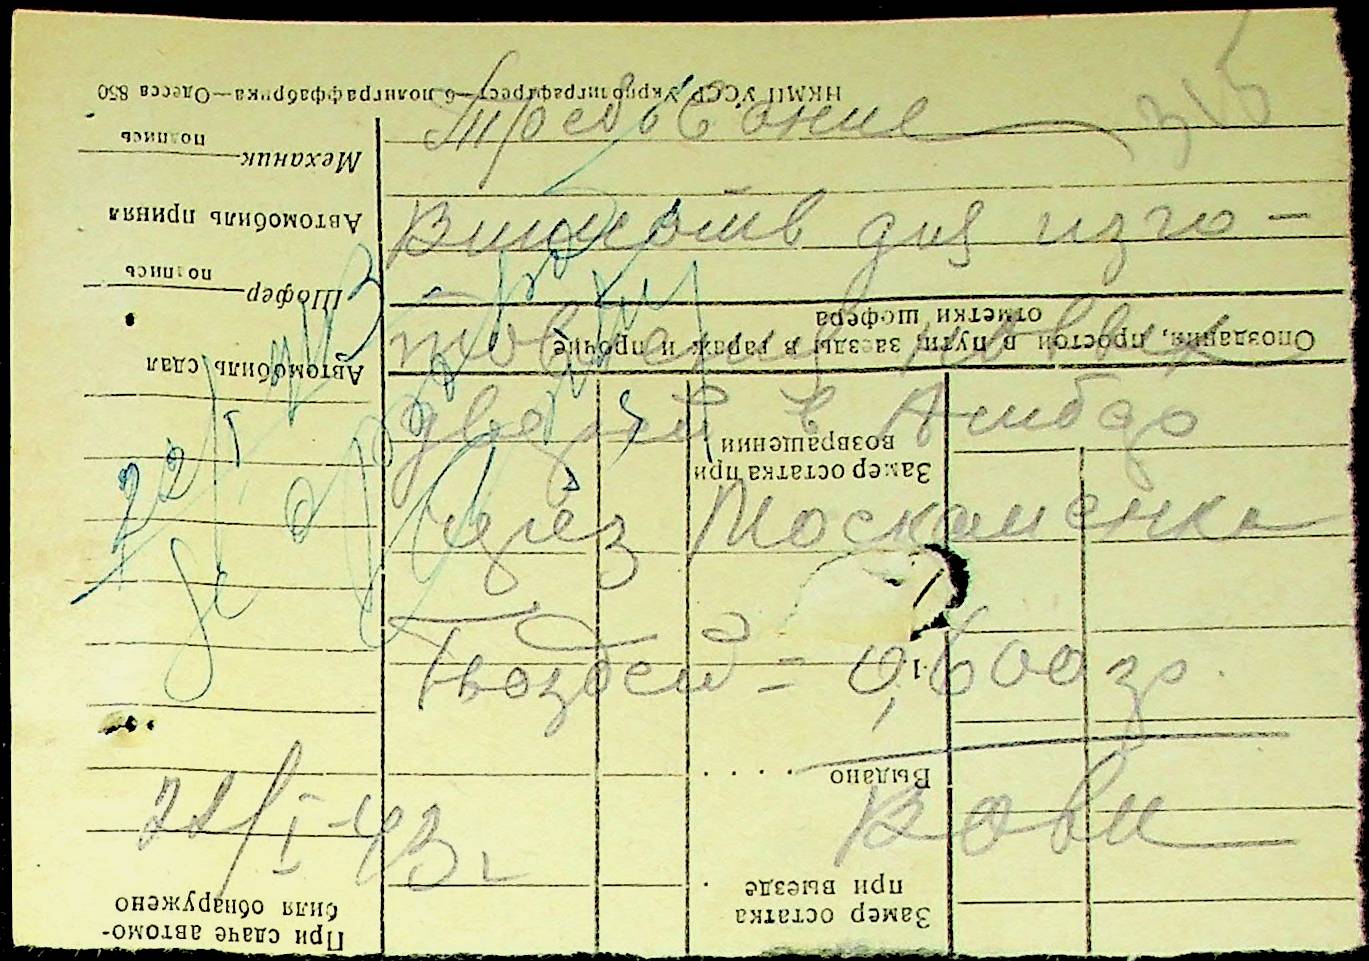 315
Требование
Выпишите для изго-
товления новых
дверей в Амбар
через Москаленка
Гвоздей = 0,600 гр.
22/I-43 г.
22/I 43
НКМП УССР Укрполиграфтрест—6 полиграффабрика—Одесса 850
Механик
подпись
Автомобиль принял
Шофер
подпись
Автомобиль сдал
Опоздания, простои в пути, заезды в гараж и прочие
отметки шофера
Замер остатка при
возвращении
Выдано
Замер остатка
при выезде
При сдаче автомо-
биля обнаружено